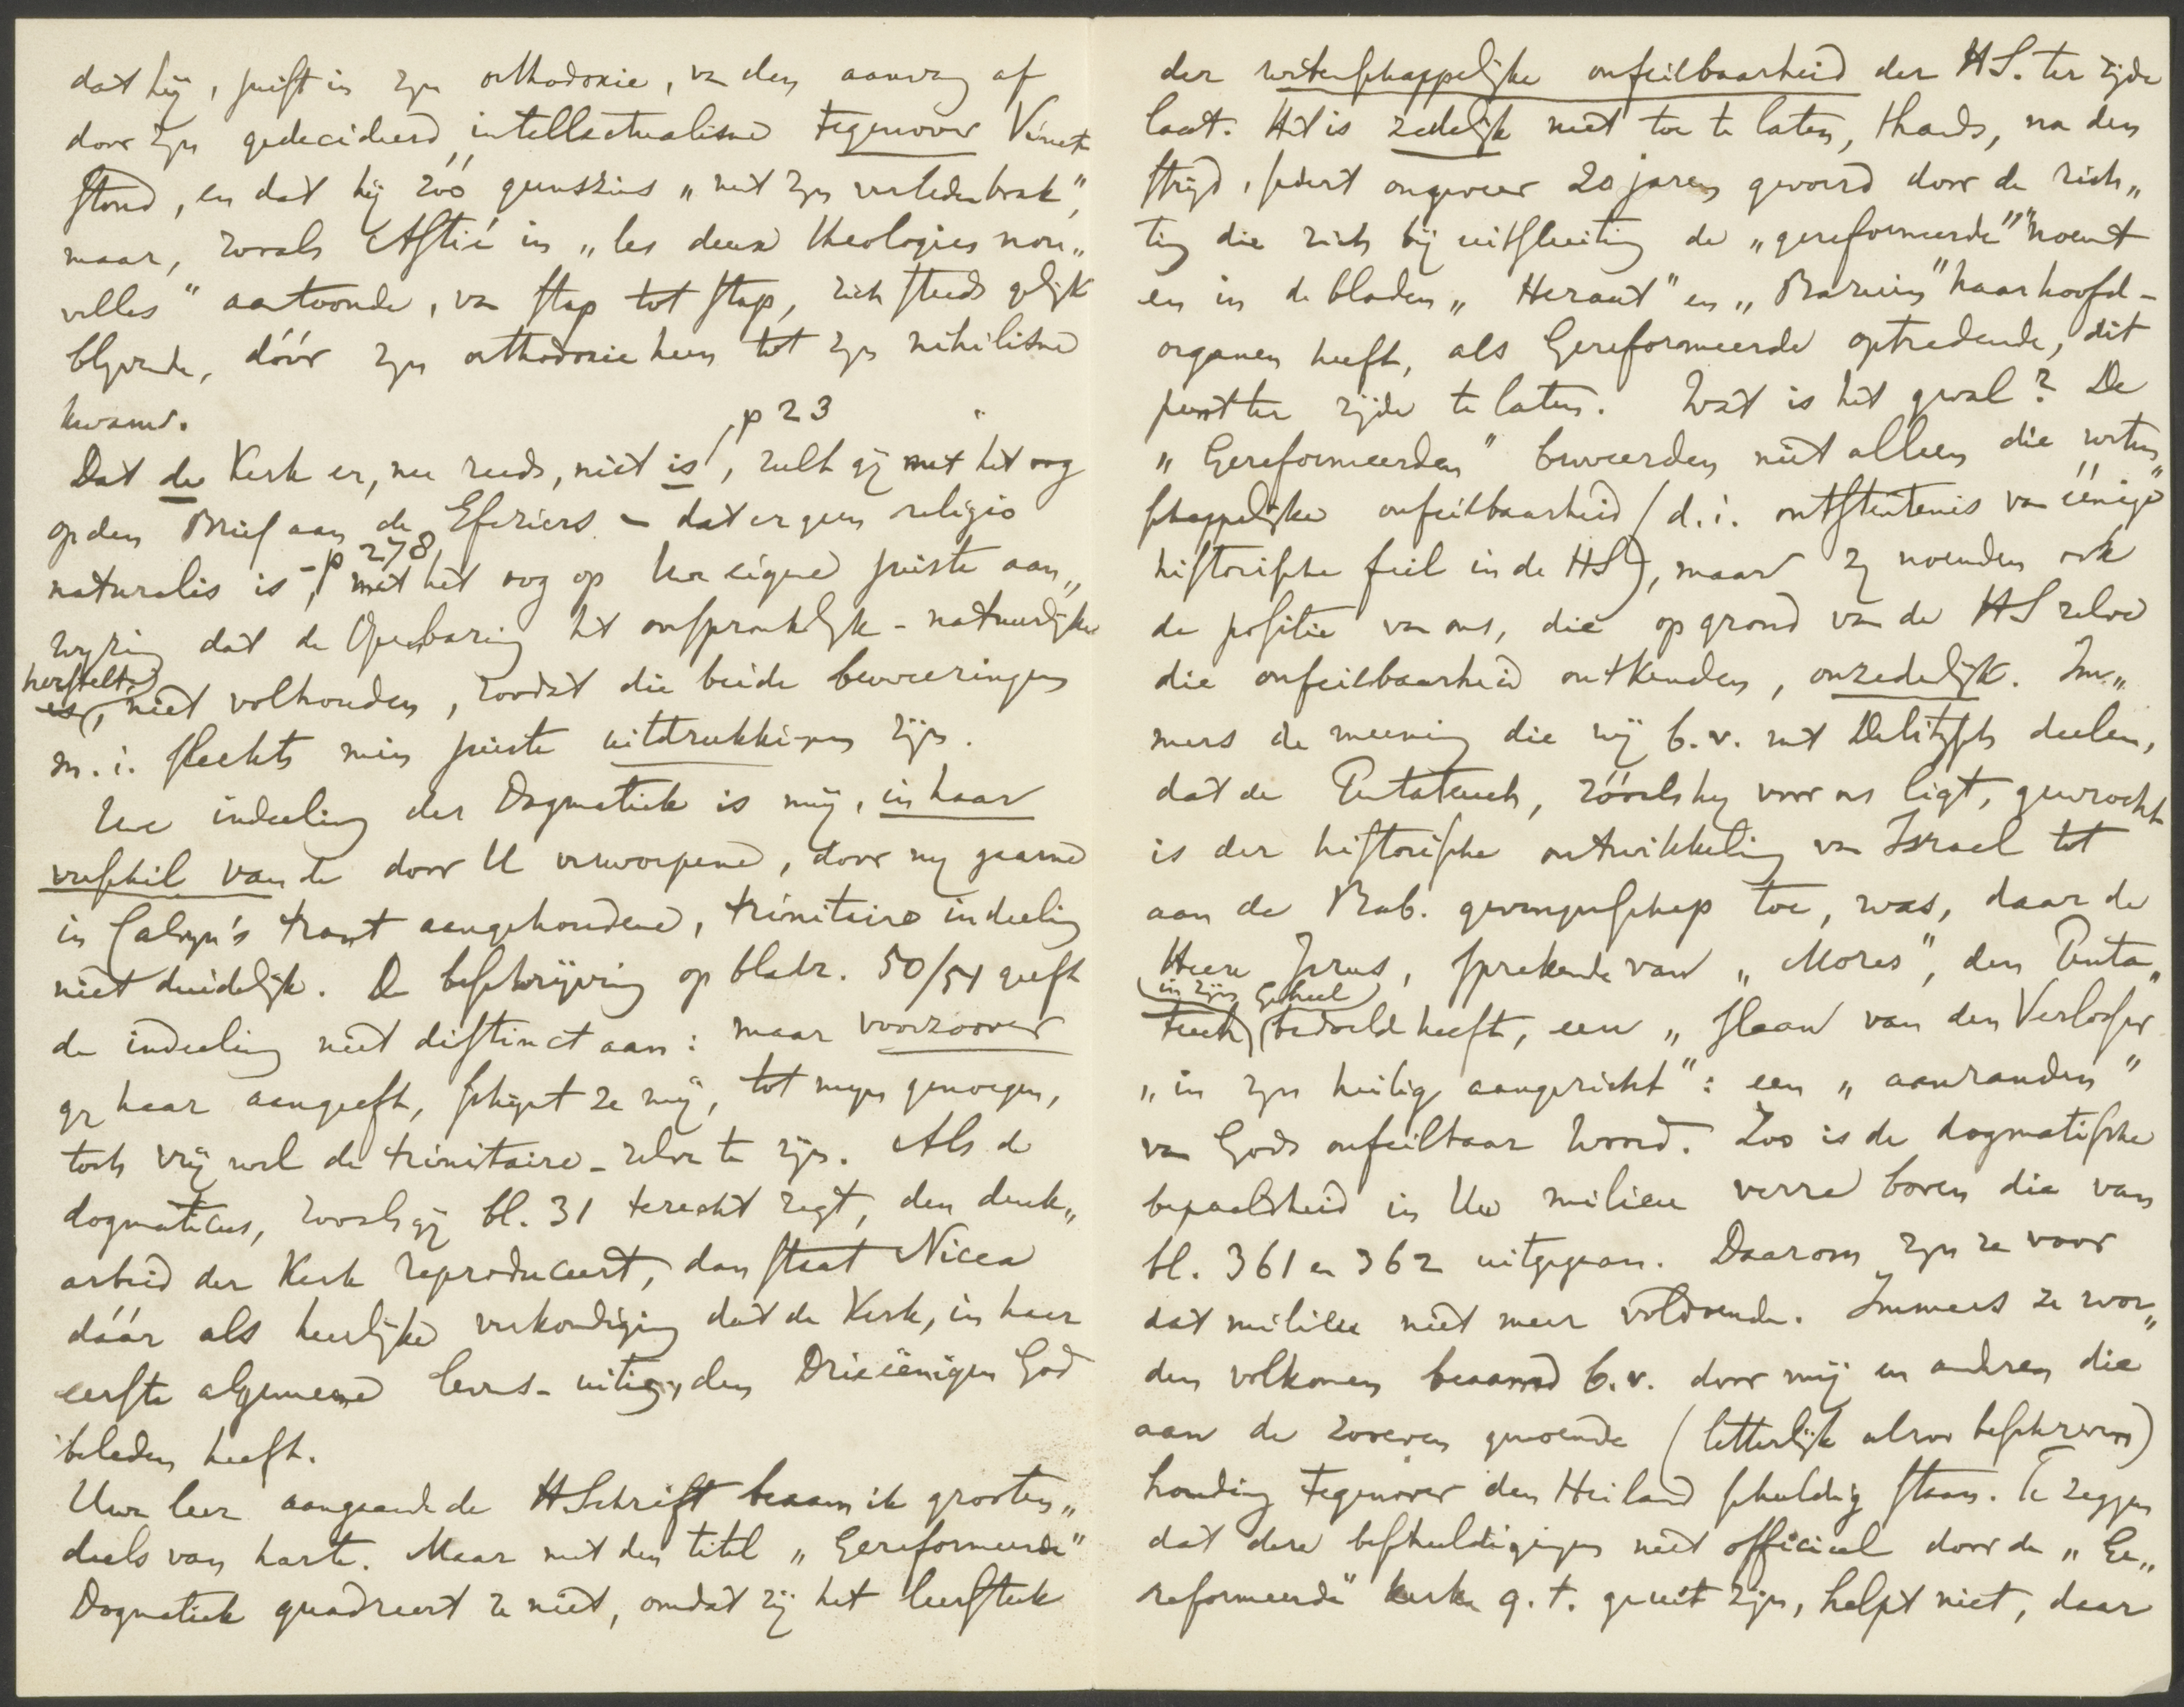 dat hij, juist in zijn orthodoxie, van den aanvang af
door zijn gedecideerd intellectualisme tegenover Vinet
stond, en dat hij zóó geenszins „met zijn verleden brak",
maar, zooals Astié in „les deux theologies nou„
velles" aantoonde, van stap tot stap, zich steeds gelijk
blijvende, dóór zijn orthodoxie heen tot zijn nihilisme
kwam.
Dat de Kerk er, nu reeds, niet is, p 23, zult gij met het oog
op den Brief aan de Efeziers – dat er geen religio
naturalis is, – p 278, met het oog op Uw eigene juiste aan„
wijzing dat de Openbaring het oorspronkelijk-natuurlijke
herstelt, niet volhouden, zoodat die beide beweeringen
m.i. slechts min juiste uitdrukkingen zijn.
Uwe indeeling der Dogmatiek is mij, in haar
verschil van de door U verworpene, door mij gaarne
in Calvijn's trant aangehoudene, trinitaire indeeling
niet duidelijk. De beschrijving op bladz. 50/51 geeft
de indeeling niet distinct aan: maar voorzoover
gij haar aangeeft, schijnt ze mij, tot mijn genoegen,
toch vrij wel de trinitaire-zelve te zijn. Als de
dogmaticus, zooals gij bl. 31 terecht zegt, den denk„
arbeid der Kerk reproduceert, dan staat Nicea
dáár als heerlijke verkondiging dat de Kerk, in haar
eerste algemeene levens-uiting, den Drieëenigen God
beleden heeft.
Uwe leer aangaande de HSchrift beaam ik grooten„
deels van harte. Maar met den titel „Gereformeerde"
Dogmatiek quadreert ze niet, omdat zij het leerstuk
der wetenschappelijke onfeilbaarheid der HS. ter zijde
laat. Het is zedelijk niet toe te laten, thans, na den
strijd, sedert ongeveer 20 jaren gevoerd door de rich„
ting die zich bij uitsluiting de „gereformeerde" noemt
en in de bladen „Heraut" en „Bazuin" haar hoofd-
organen heeft, als Gereformeerde optredende, dit
punt ter zijde te laten. Wat is het geval? De
„Gereformeerden" beweerden niet alleen die weten„
schappelijke onfeilbaarheid (d.i. ontstentenis van éénige
historische feil in de HS), maar zij noemden ook
de positie van ons, die op grond van de HS zelve
die onfeilbaarheid ontkenden, onzedelijk. Im„
mers de meening die wij b.v. met Delitzsch deelen,
dat de Pentateuch, zóóals hij voor ons ligt, gewrocht
is der historische ontwikkeling van Israel tot
aan de Bab. gevangenschap toe, was, daar de
Heere Jezus, sprekende van „Mozes", den Penta„
teuch (in zijn geheel) bedoeld heeft, een „slaan van den Verlosser
„in zijn heilig aangezicht": een „aanranden"
van Gods onfeilbaar Woord. Zoo is de dogmatische
bepaaldheid in Uw milieu verre boven die van
bl. 361 en 362 uitgegaan. Daarom zijn ze voor
dat milieu niet meer voldoende. Immers ze wor„
den volkomen beaamd b.v. door mij en anderen die
aan de zooeven genoemde (letterlijk alzoo beschreven)
houding tegenover den Heiland schuldig staan. Te zeggen
dat deze beschuldigingen niet officieel door de „Ge„
reformeerde" kerken g.t. geuit zijn, helpt niet, daar